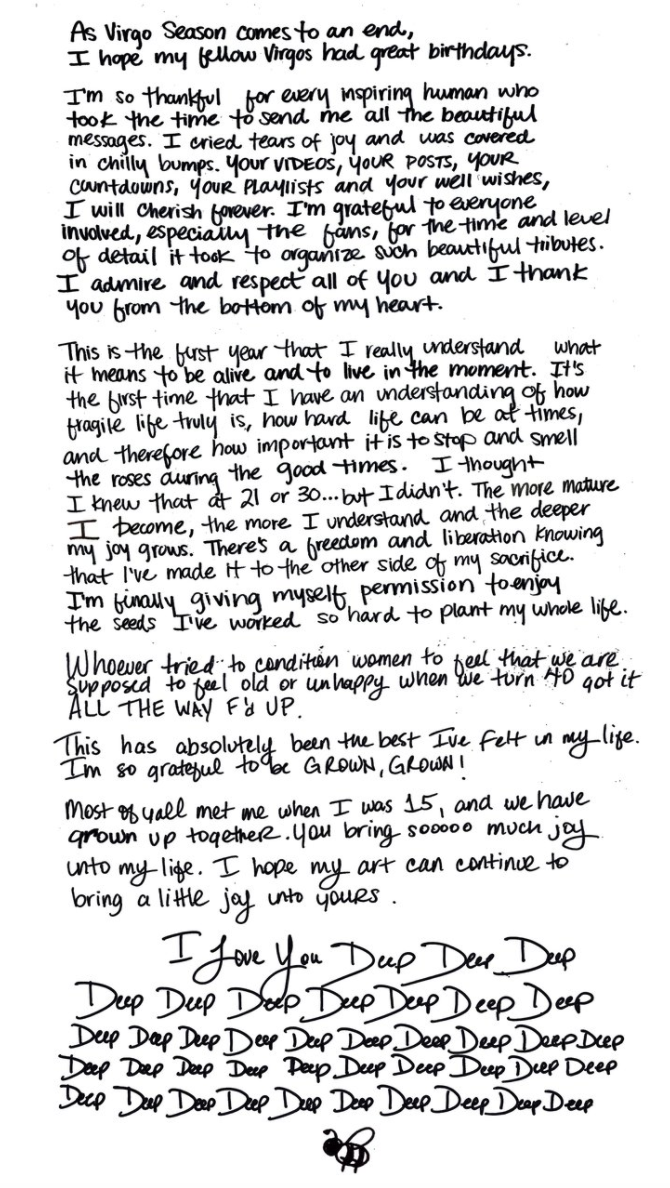 As Virgo Season comes to an end,
I hope my fellow Virgos had great birthdays.
I'm so thankful for every inspiring human who
took the time to send me all the beautiful
messages. I cried tears of joy and was covered
in chilly bumps. Your VIDEOS, YOUR POSTS, YOUR
countdowns, YOUR PLAYLISTS and your well wishes,
I will cherish forever. I'm grateful to everyone
involved, especially the fans, for the time and level
of detail it took to organize such beautiful tributes.
I admire and respect all of you and I thank
you from the bottom of my heart.
This is the first year that I really understand what
it means to be alive and to live in the moment. It's
the first time that I have an understanding of how
fragile life truly is, how hard life can be at times,
and therefore how important it is to stop and smell
the roses during the good times. I thought
I knew that at 21 or 30...but I didn't. The more mature
I become, the more I understand and the deeper
my joy grows. There's a freedom and liberation knowing
that I've made it to the other side of my sacrifice.
I'm finally giving myself permission to enjoy
the seeds I've worked so hard to plant my whole life.
Whoever tried to condition women to feel that we are
supposed to feel old or unhappy when we turn 40 got it
ALL THE WAY F'd UP.
This has absolutely been the best Ive felt in my life.
Im so grateful to be GROWN, GROWN!
Most of yall met me when I was 15, and we have
grown up together. You bring sooooo much joy
into my life. I hope my art can continue to
bring a little joy into yours.
I Love You Deep Deep Deep
Deep Deep Deep Deep Deep Deep Deep
Deep Deep Deep Deep Deep Deep Deep Deep Deep Deep
Deep Deep Deep Deep Deep Deep Deep Deep Deep Deep
Deep Deep Deep Deep Deep Deep Deep Deep Deep Deep